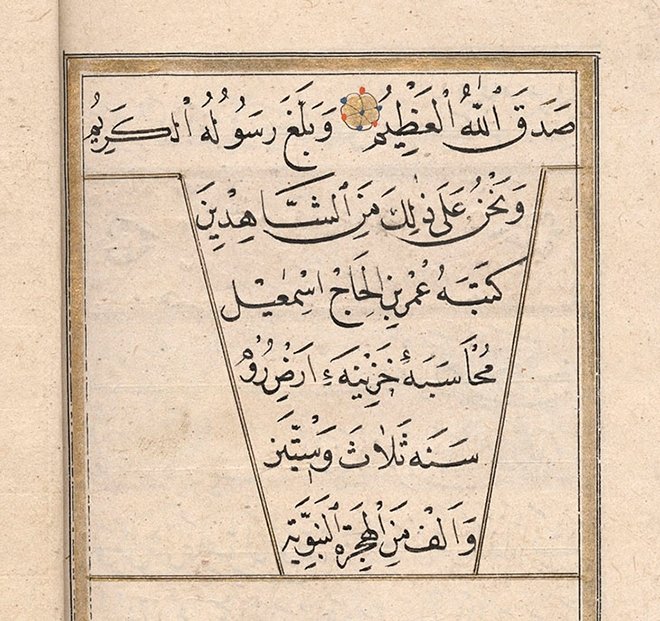 صَدَقَ اللّٰهُ الْعَظِيْمُ وَبَلَّغَ رَسُوْلُهُ الْكَرِيْمُ
وَنَحْنُ عَلَى ذٰلِكَ مِنَ الشَّاهِدِينَ
كَتَبَهُ عُمَرْ بِنِ الْحَاجْ اِسْمٰعِيْل
مُحَاسَبَهٔ خَزِينَهٔ اَرَضِرُوْمْ
سَنَه ثَلَاثَ وَسِتِّينَ
وَاَلْفْ مِنَ الْهِجْرَةِ النَّبَوِيَّةِ